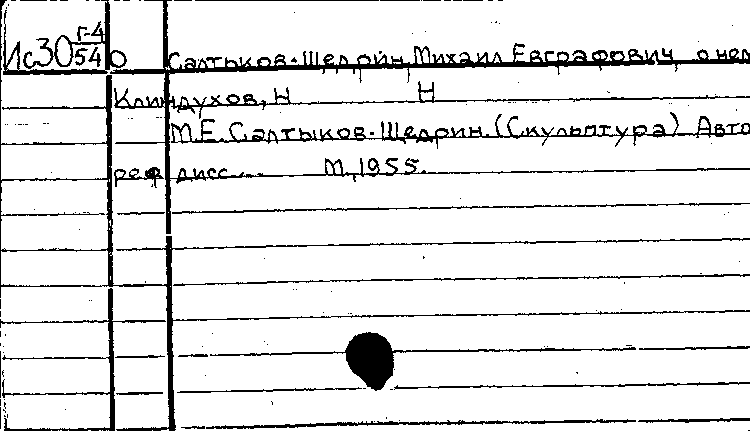 Ис30 Г-4/54 О Салтыков-Щедрин, Михаил Евграфович, о нем
Клиндухов, Н Н
М.Е. Салтыков-Щедрин. (Скульптура) Авто
реф дисс.... М, 1955.